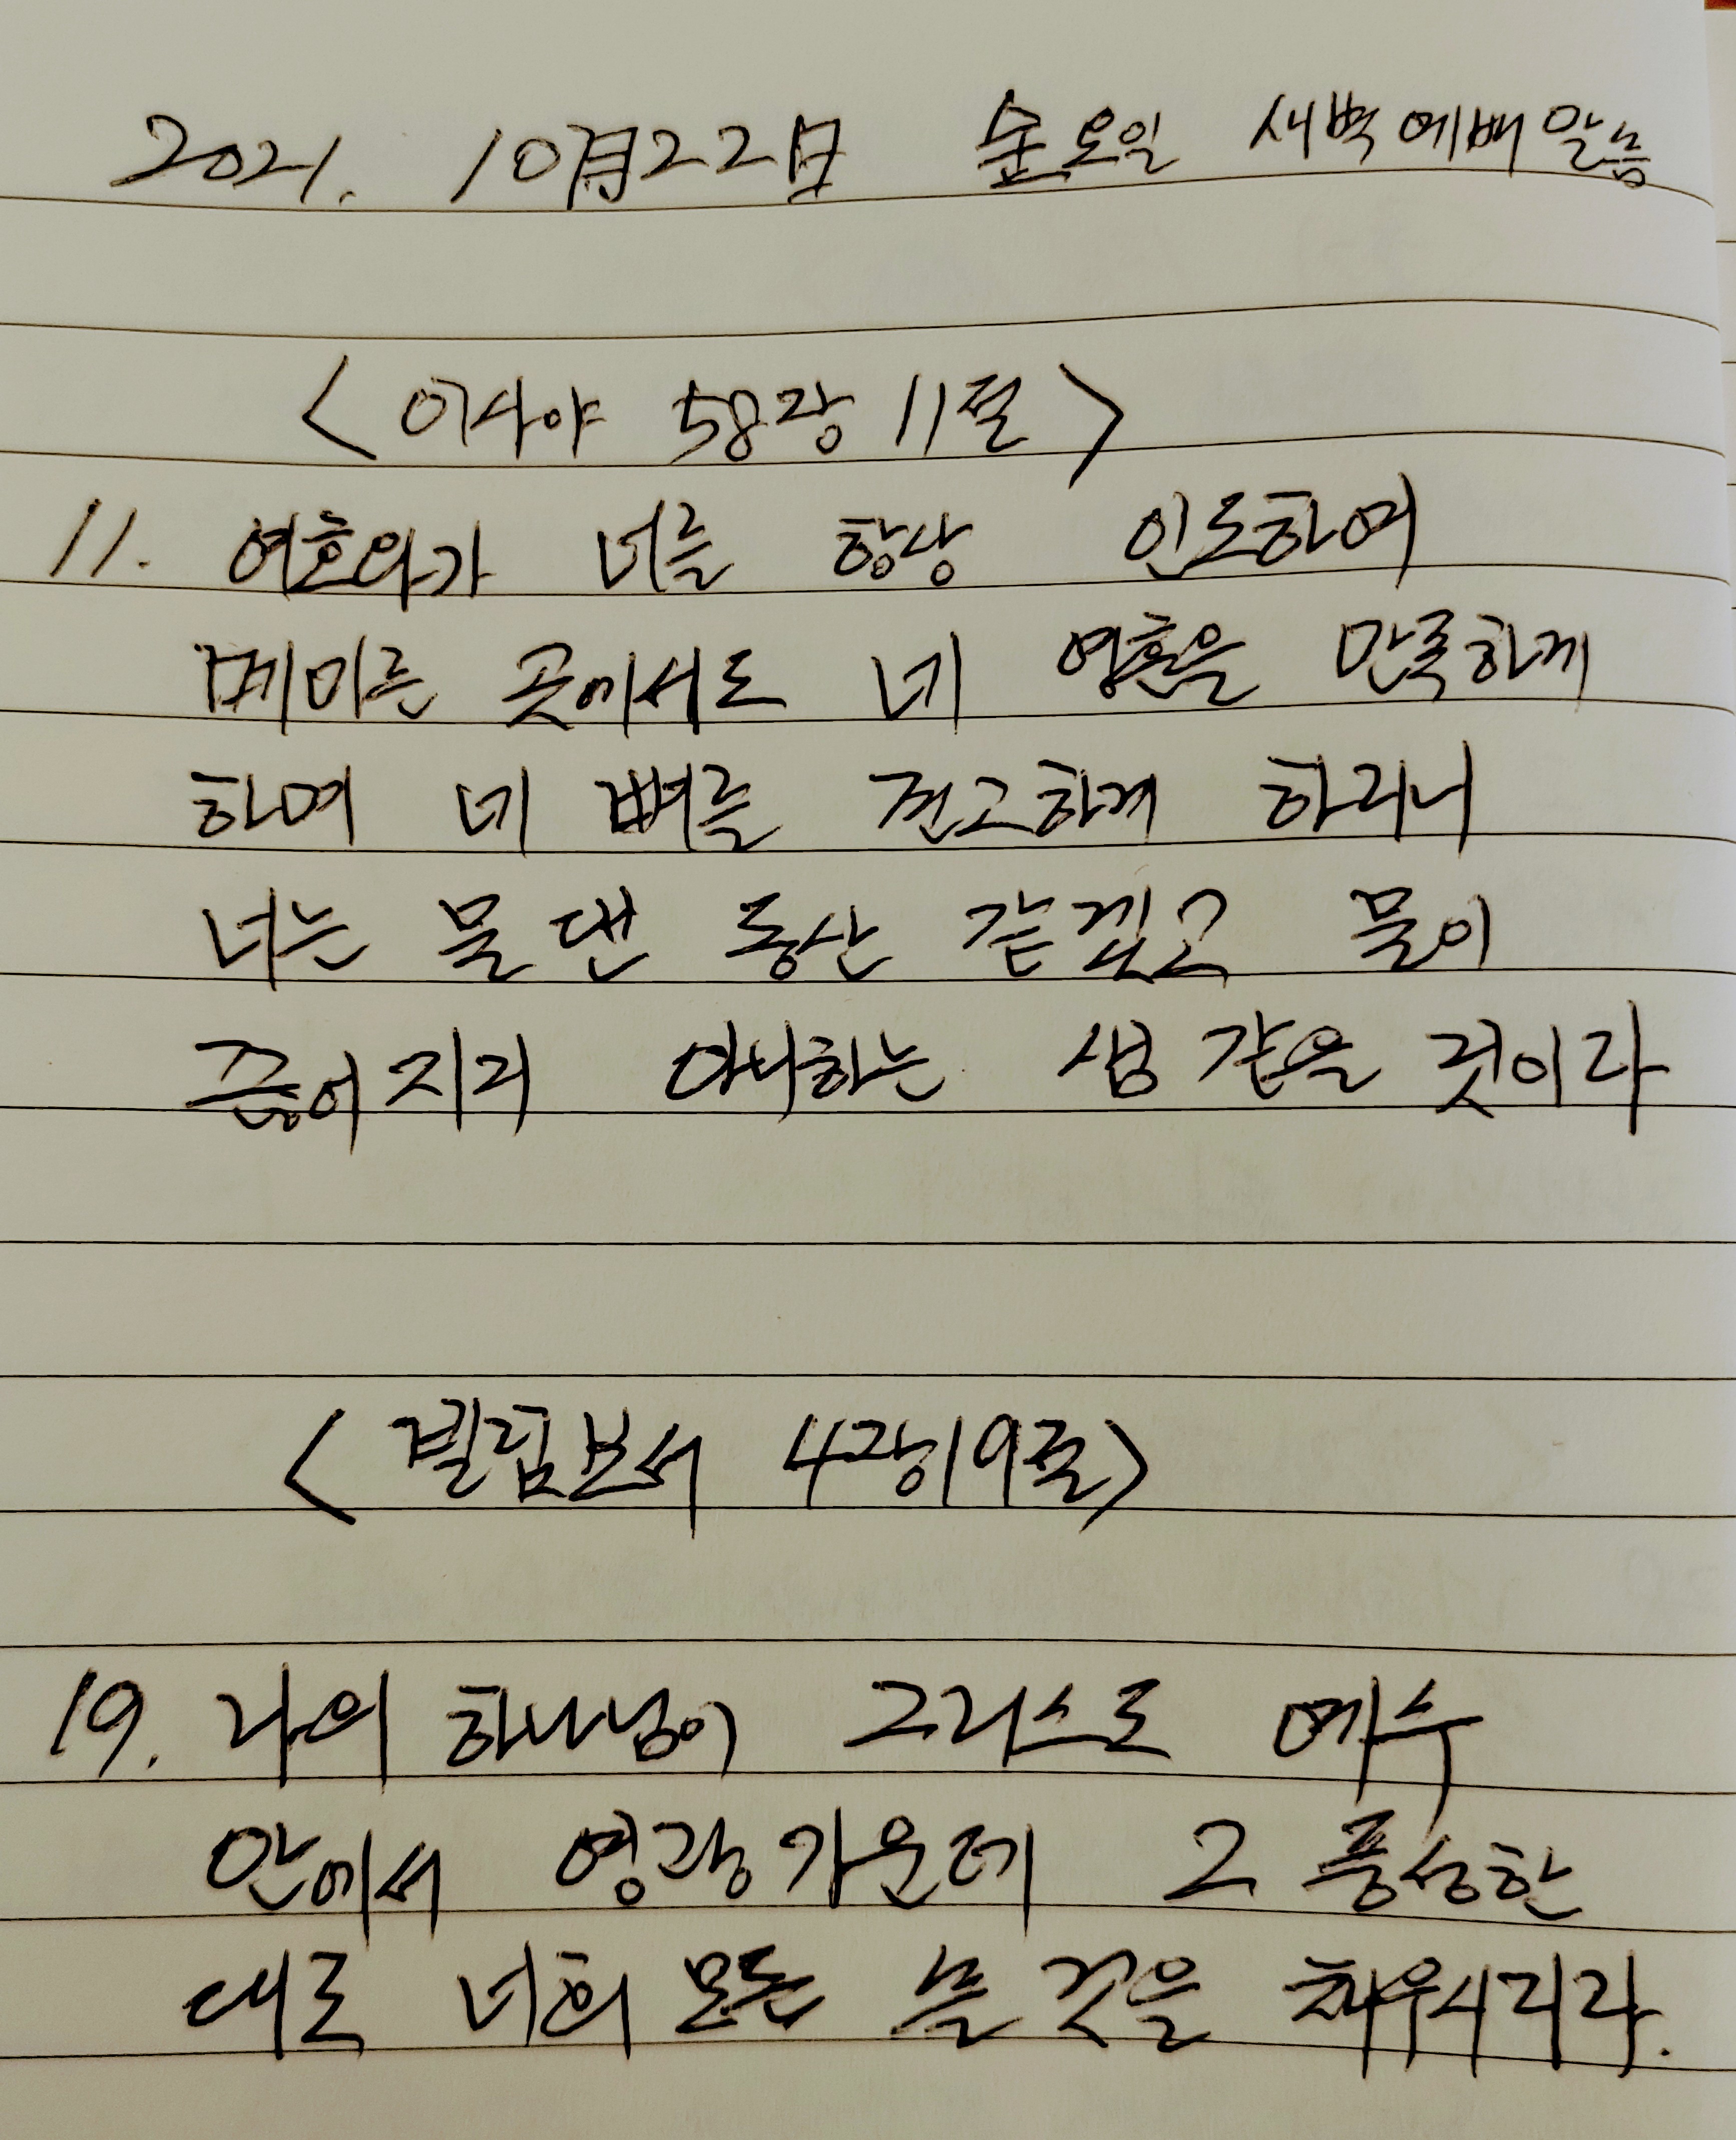 2021. 10月22日 金요일 새벽예배말씀
< 이사야 58장 11절 >
11. 여호와가 너를 항상 인도하여
메마른 곳에서도 네 영혼을 만족하게
하며 네 뼈를 견고하게 하리니
너는 물 댄 동산 같겠고 물이
끊어지지 아니하는 샘 같을 것이라
< 빌립보서 4장19절>
19. 나의 하나님이 그리스도 예수
안에서 영광가운데 그 풍성한
대로 너희 모든 쓸 것을 채우시리라.